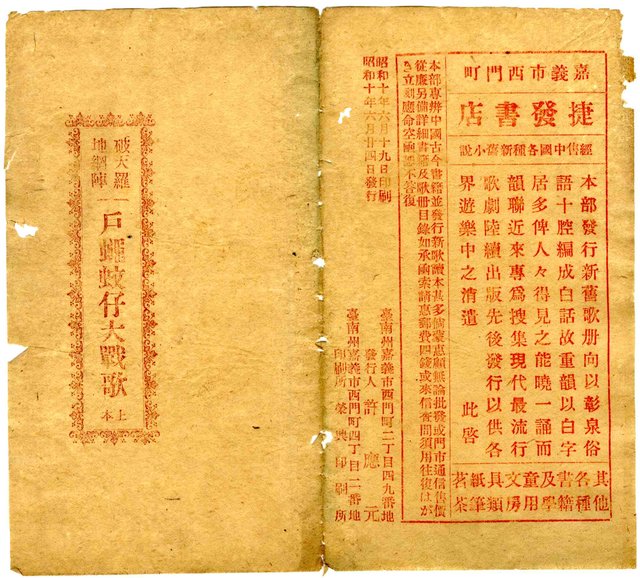 嘉義市西門町
捷發書店
經售中國各種新舊小說
本部發行新舊歌册向以彰泉俗
語十腔編成白話故重韻以白字
居多俾人々得見之能曉一誦而
韻聯近來專爲搜集現代最流行
歌劇陸續出版先後發行以供各
界遊樂中之消遣 此啓
其他各種書籍及學童用文房具類紙筆茗茶
本部專辨中國古今書籍並發行新歌讀本甚多倘蒙惠顧無論批發或門市通信售價
從廉另備詳細書籍及歌册目錄如承函索請惠郵費四錢或來信寄問須用往復はが
き立刻應命空函恕不答復
昭和十年六月十九日印刷
昭和十年六月廿四日發行
臺南州嘉義市西門町二丁目四九番地
發行人 許應元
臺南州嘉義市西門町四丁目二番地
印刷所 榮 印刷所
破天羅
地網陣
戶蠅蚊仔大戰歌
上本